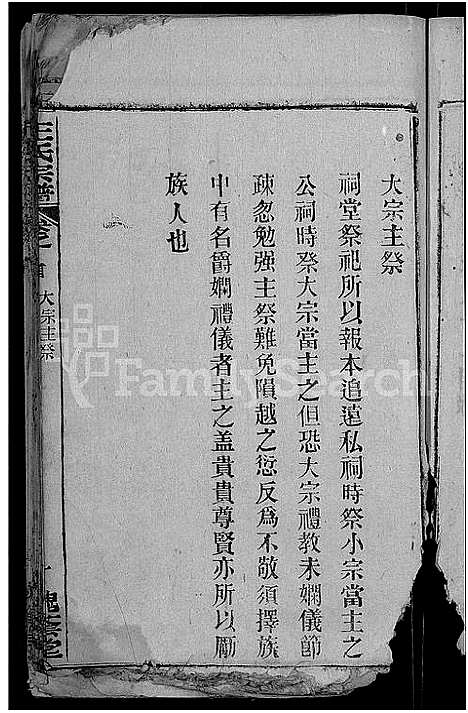 大宗主祭
祠堂祭祀所以報本追遠私祠時祭小宗當主之
公祠時祭大宗當主之但恐大宗禮教未嫻儀節
疎忽勉强主祭難免隕越之愆反為不敬須擇族
中有名爵嫻禮儀者主之盖貴貴尊賢亦所以勵
族人也
王氏宗譜
卷之首
大宗主祭
FamilySearch